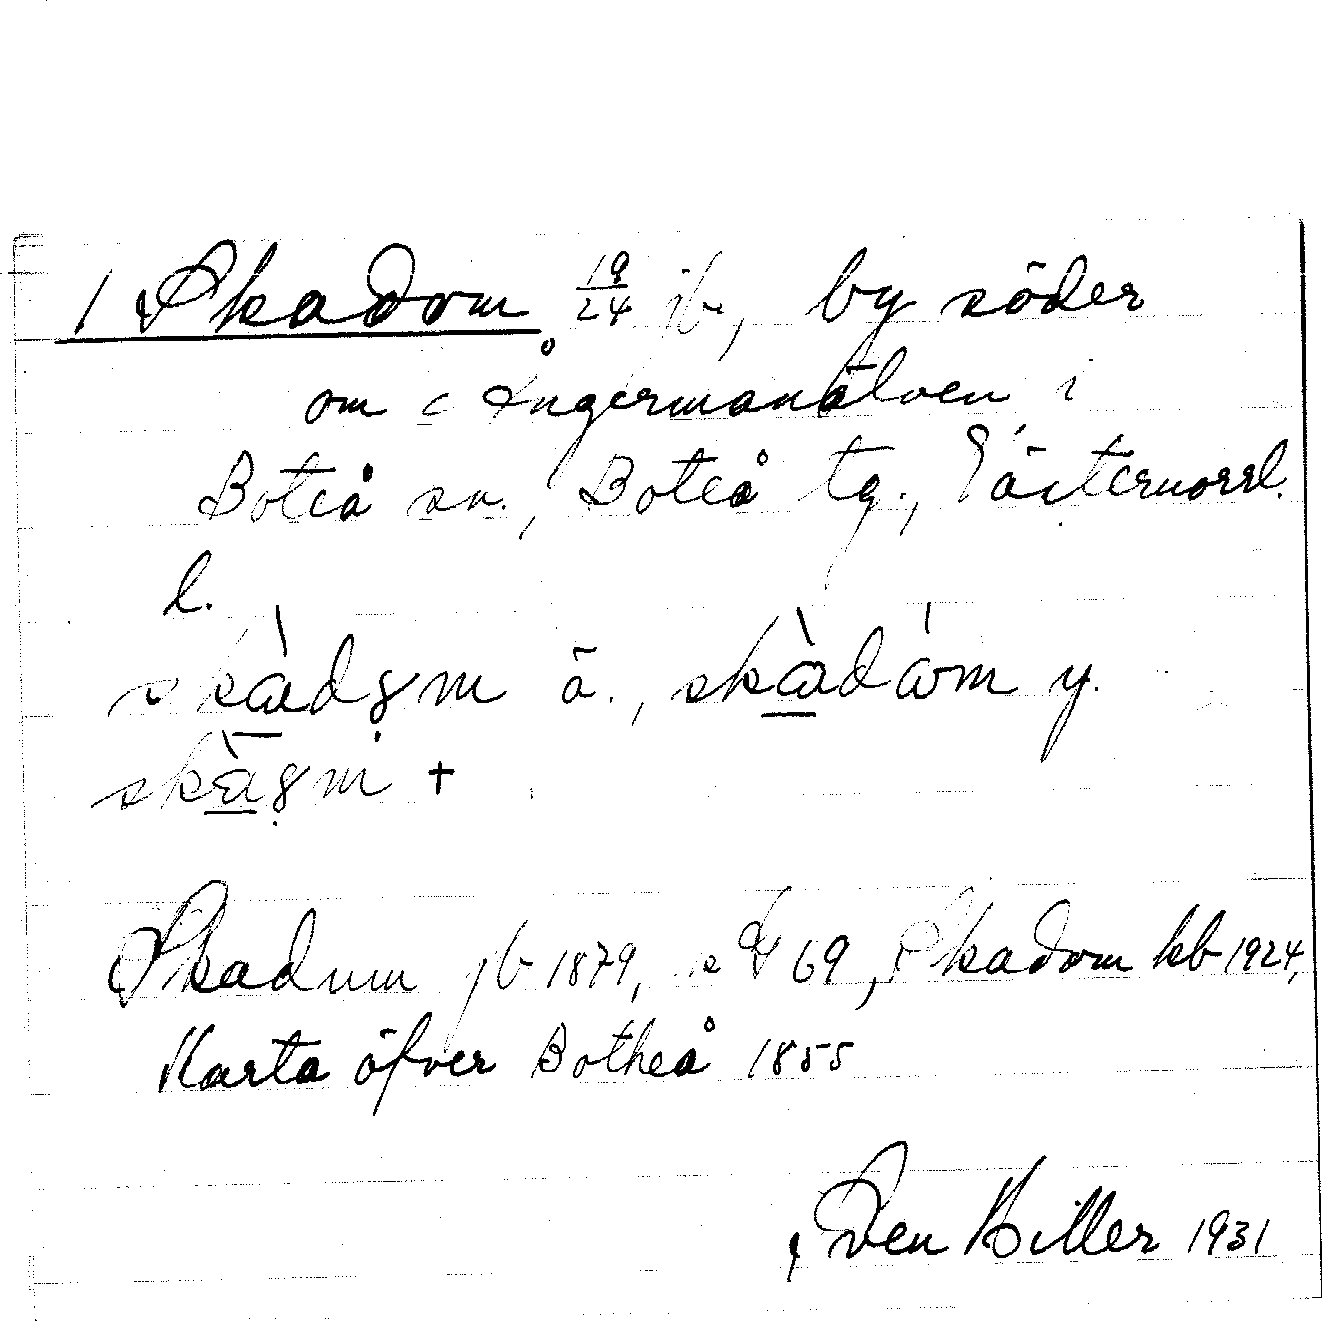 1 Skadom 19/24 jb, by söder
om Ångermanälven i
Boteå sn., Boteå tg., Västernorrl.
l.
skàdɤm ä., skàdòm y.
skàɤm +
Skadum jb 1879, 69, Skadom kb 1924,
Karta öfver Botheå 1855
Sven Hiller 1931